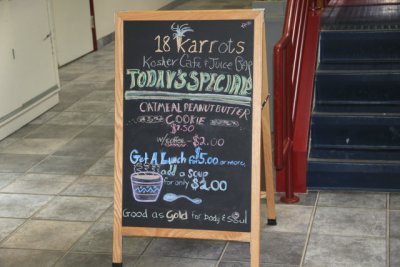 18 Karrots
Kosher Café & Juice Bar
TODAY'S SPECIAL
OATMEAL PEANUT BUTTER
COOKIE
w/coffee
$2.00
Get A Lunch for $5.00 or more,
add a soup
for only $2.00
Good as Gold for body & soul